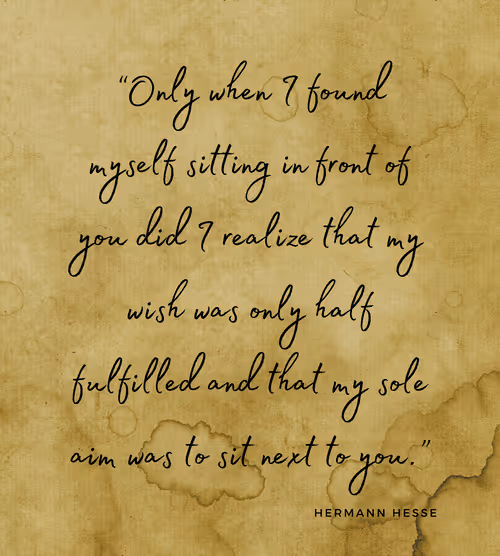 “Only when I found
myself sitting in front of
you did I realize that my
wish was only half
fulfilled and that my sole
aim was to sit next to you.”
HERMANN HESSE